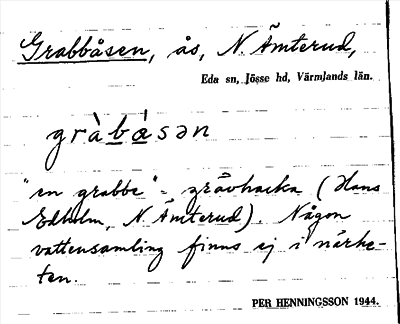 Grabbåsen, ås, N. Ämterud,
Eda sn, Jösse hd, Värmlands län.
gràbåsən
"en grabbe" - gråvhacka (Hans
Edholm, N. Ämterud). Någon
vattensamling finns ej i närhe-
ten.
PER HENNINGSSON 1944.